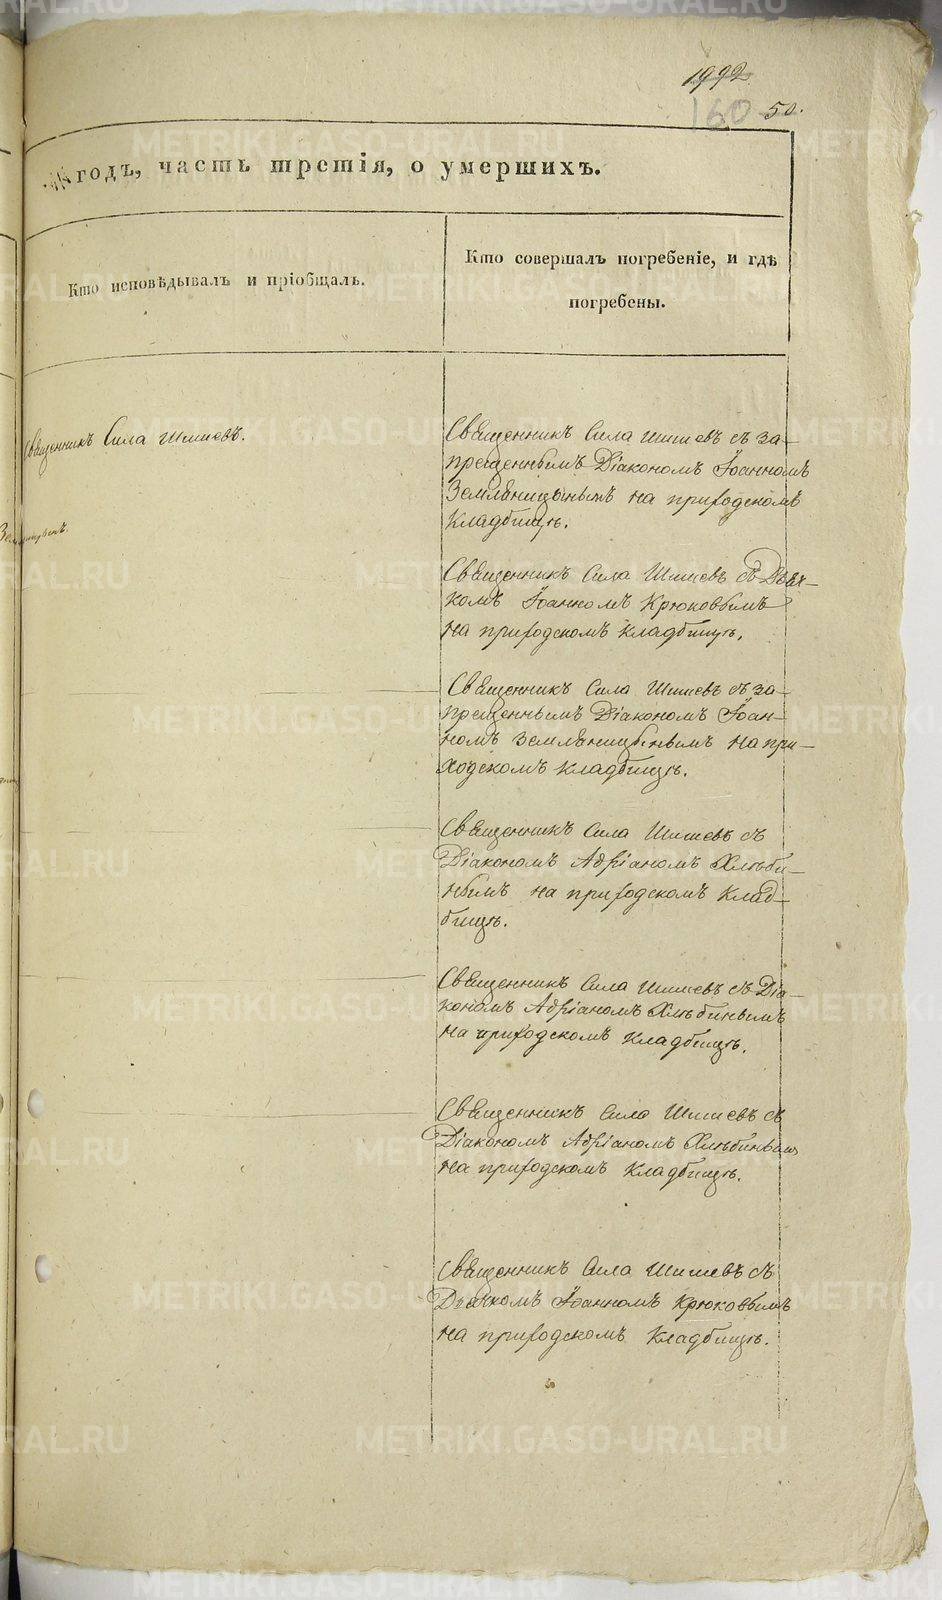 1992
160 50.
годъ, часть третія, о умершихъ.
Кто исповѣдывалъ и пріобщалъ.
Кто совершалъ погребеніе, и гдѣ
погребены.
Священникъ Сила Шишевъ.
Священникъ Сила Шишевъ съ за-
прещеннымъ Діакономъ Іоанномъ
Земляницынымъ на приходскомъ
кладбищѣ.
Священникъ Сила Шишевъ съ Дьяч-
комъ Іоанномъ Крюковымъ
на приходскомъ кладбищѣ.
Священникъ Сила Шишевъ съ за-
прещеннымъ Діакономъ Іоан-
номъ Земляницынымъ на при-
ходскомъ кладбищѣ.
Священникъ Сила Шишевъ съ
Діакономъ Адріаномъ Хлѣби-
нымъ на приходскомъ клад-
бищѣ.
Священникъ Сила Шишевъ съ Діа-
кономъ Адріаномъ Хлѣбинымъ
на приходскомъ кладбищѣ.
Священникъ Сила Шишевъ съ
Діакономъ Адріаномъ Хлѣбинымъ
на приходскомъ кладбищѣ.
Священникъ Сила Шишевъ съ
Дьячкомъ Іоанномъ Крюковымъ
на приходскомъ кладбищѣ.
METRIKI.GASO-URAL.RU